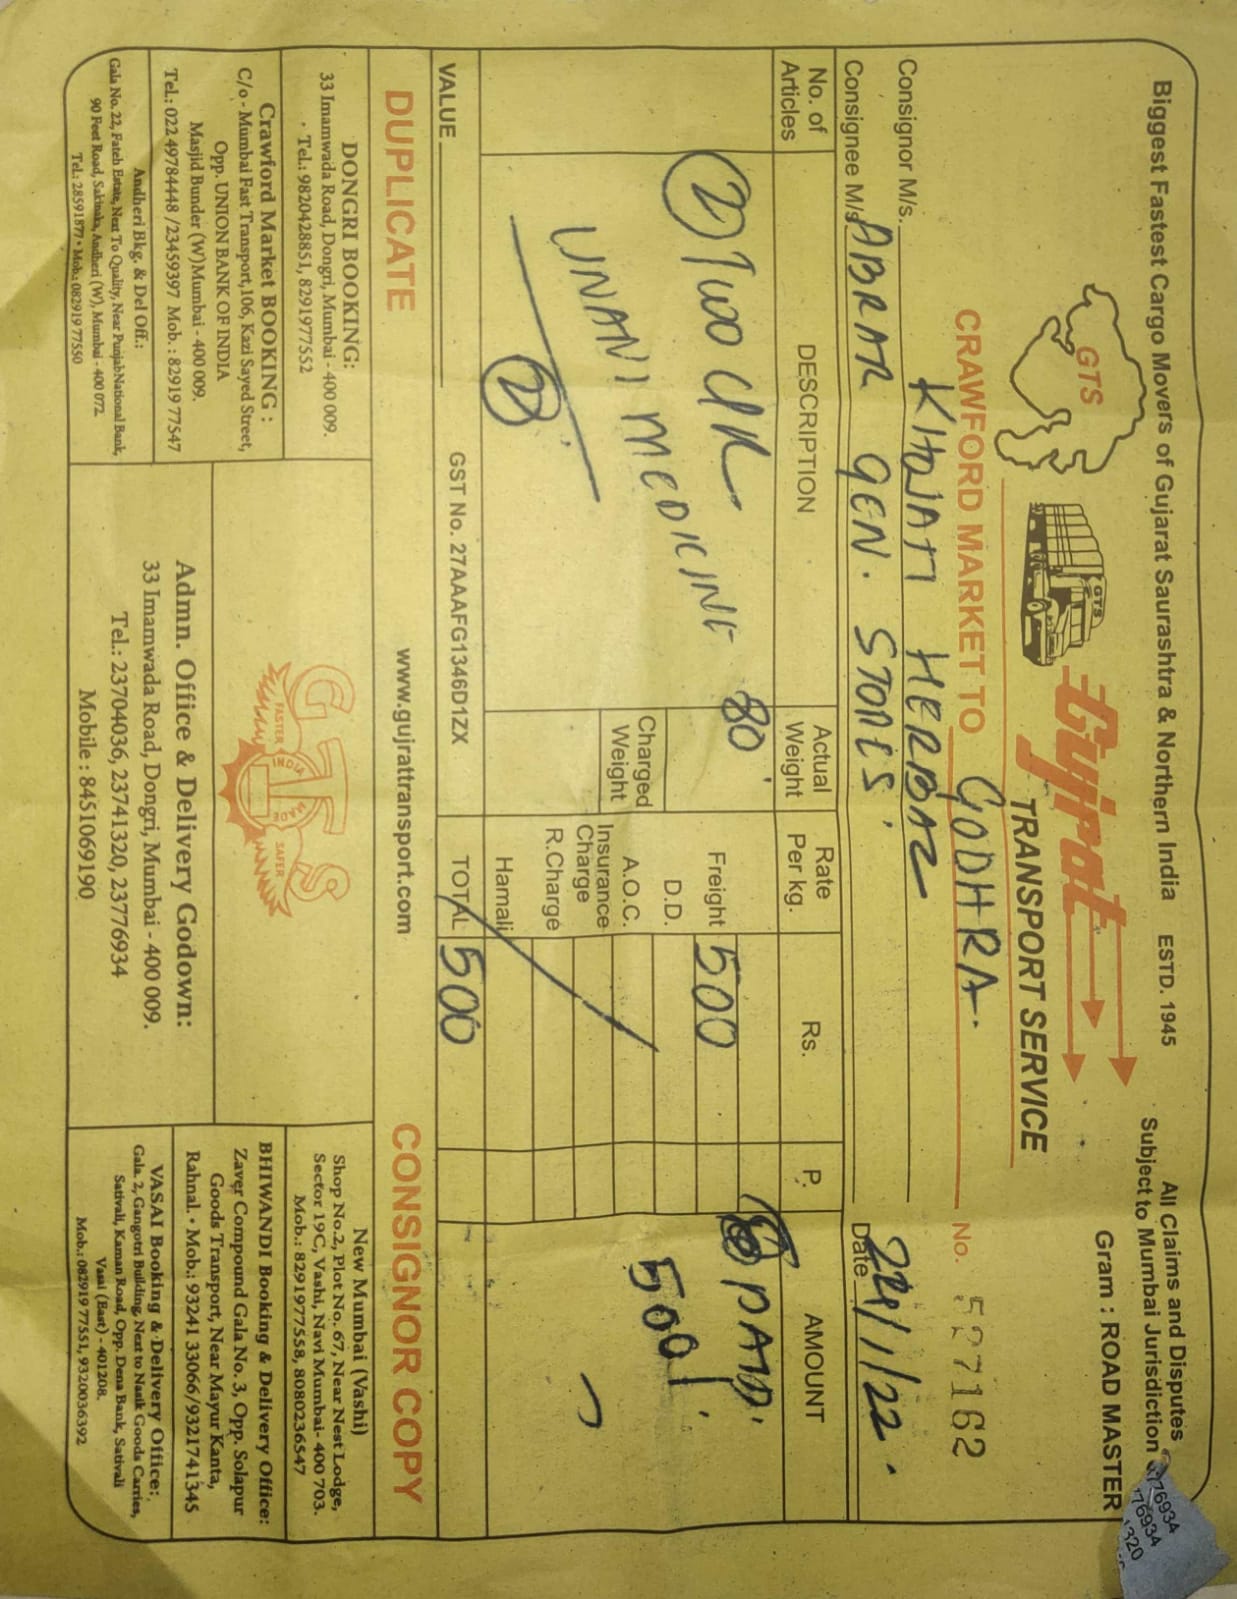 Biggest Fastest Cargo Movers of Gujarat Saurashtra & Northern India ESTD. 1945
All Claims and Disputes
Subject to Mumbai Jurisdiction
Gram : ROAD MASTER
GTS
GTS
Gujrat
TRANSPORT SERVICE
CRAWFORD MARKET TO GODHRA. No. 527162
Consignor M/s. KHOJATI HERBAZ
Consignee M/s ABRAR GEN. STORES. Date 24/1/22.
No. of Articles DESCRIPTION Actual Weight Rate Per kg. Rs. P. AMOUNT
2 TWO CTR 80 PAID.
Freight 500
UNANI MEDICINE D.D. 500/
Charged Weight A.O.C.
Insurance Charge
R.Charge
2 Hamali
VALUE GST No. 27AAAFG1346D1ZX TOTAL 500
DUPLICATE www.gujrattransport.com CONSIGNOR COPY
DONGRI BOOKING:
33 Imamwada Road, Dongri, Mumbai - 400 009.
Tel.: 9820428851, 8291977552
Crawford Market BOOKING :
C/o - Mumbai Fast Transport,106, Kazi Sayed Street,
Opp. UNION BANK OF INDIA
Masjid Bunder (W)Mumbai - 400 009.
Tel.: 022 49784448 /23459397 Mob. : 82919 77547
Andheri Bkg. & Del Off.:
Gala No. 22, Fateh Estate, Next To Quality, Near PunjabNational Bank,
90 Feet Road, Sakinaka, Andheri (W), Mumbai - 400 072.
Tel.: 28591877 • Mob.: 082919 77550
GTS
FASTER INDIA MADE SAFER
Admn. Office & Delivery Godown:
33 Imamwada Road, Dongri, Mumbai - 400 009.
Tel.: 23704036, 23741320, 23776934
Mobile : 8451069190
New Mumbai (Vashi)
Shop No.2, Plot No. 67, Near Nest Lodge,
Sector 19C, Vashi, Navi Mumbai- 400 703.
Mob.: 8291977558, 8080236547
BHIWANDI Booking & Delivery Office:
Zaver Compound Gala No. 3, Opp. Solapur
Goods Transport, Near Mayur Kanta,
Rahnal. • Mob.: 93241 33066/9321741345
VASAI Booking & Delivery Office:
Gala. 2, Gangotri Building, Next to Nasik Goods Carries,
Sativali, Kaman Road, Opp. Dena Bank, Sativali
Vasai (East) - 401208.
Mob.: 082919 77551, 9320036392
776934
776934
1320